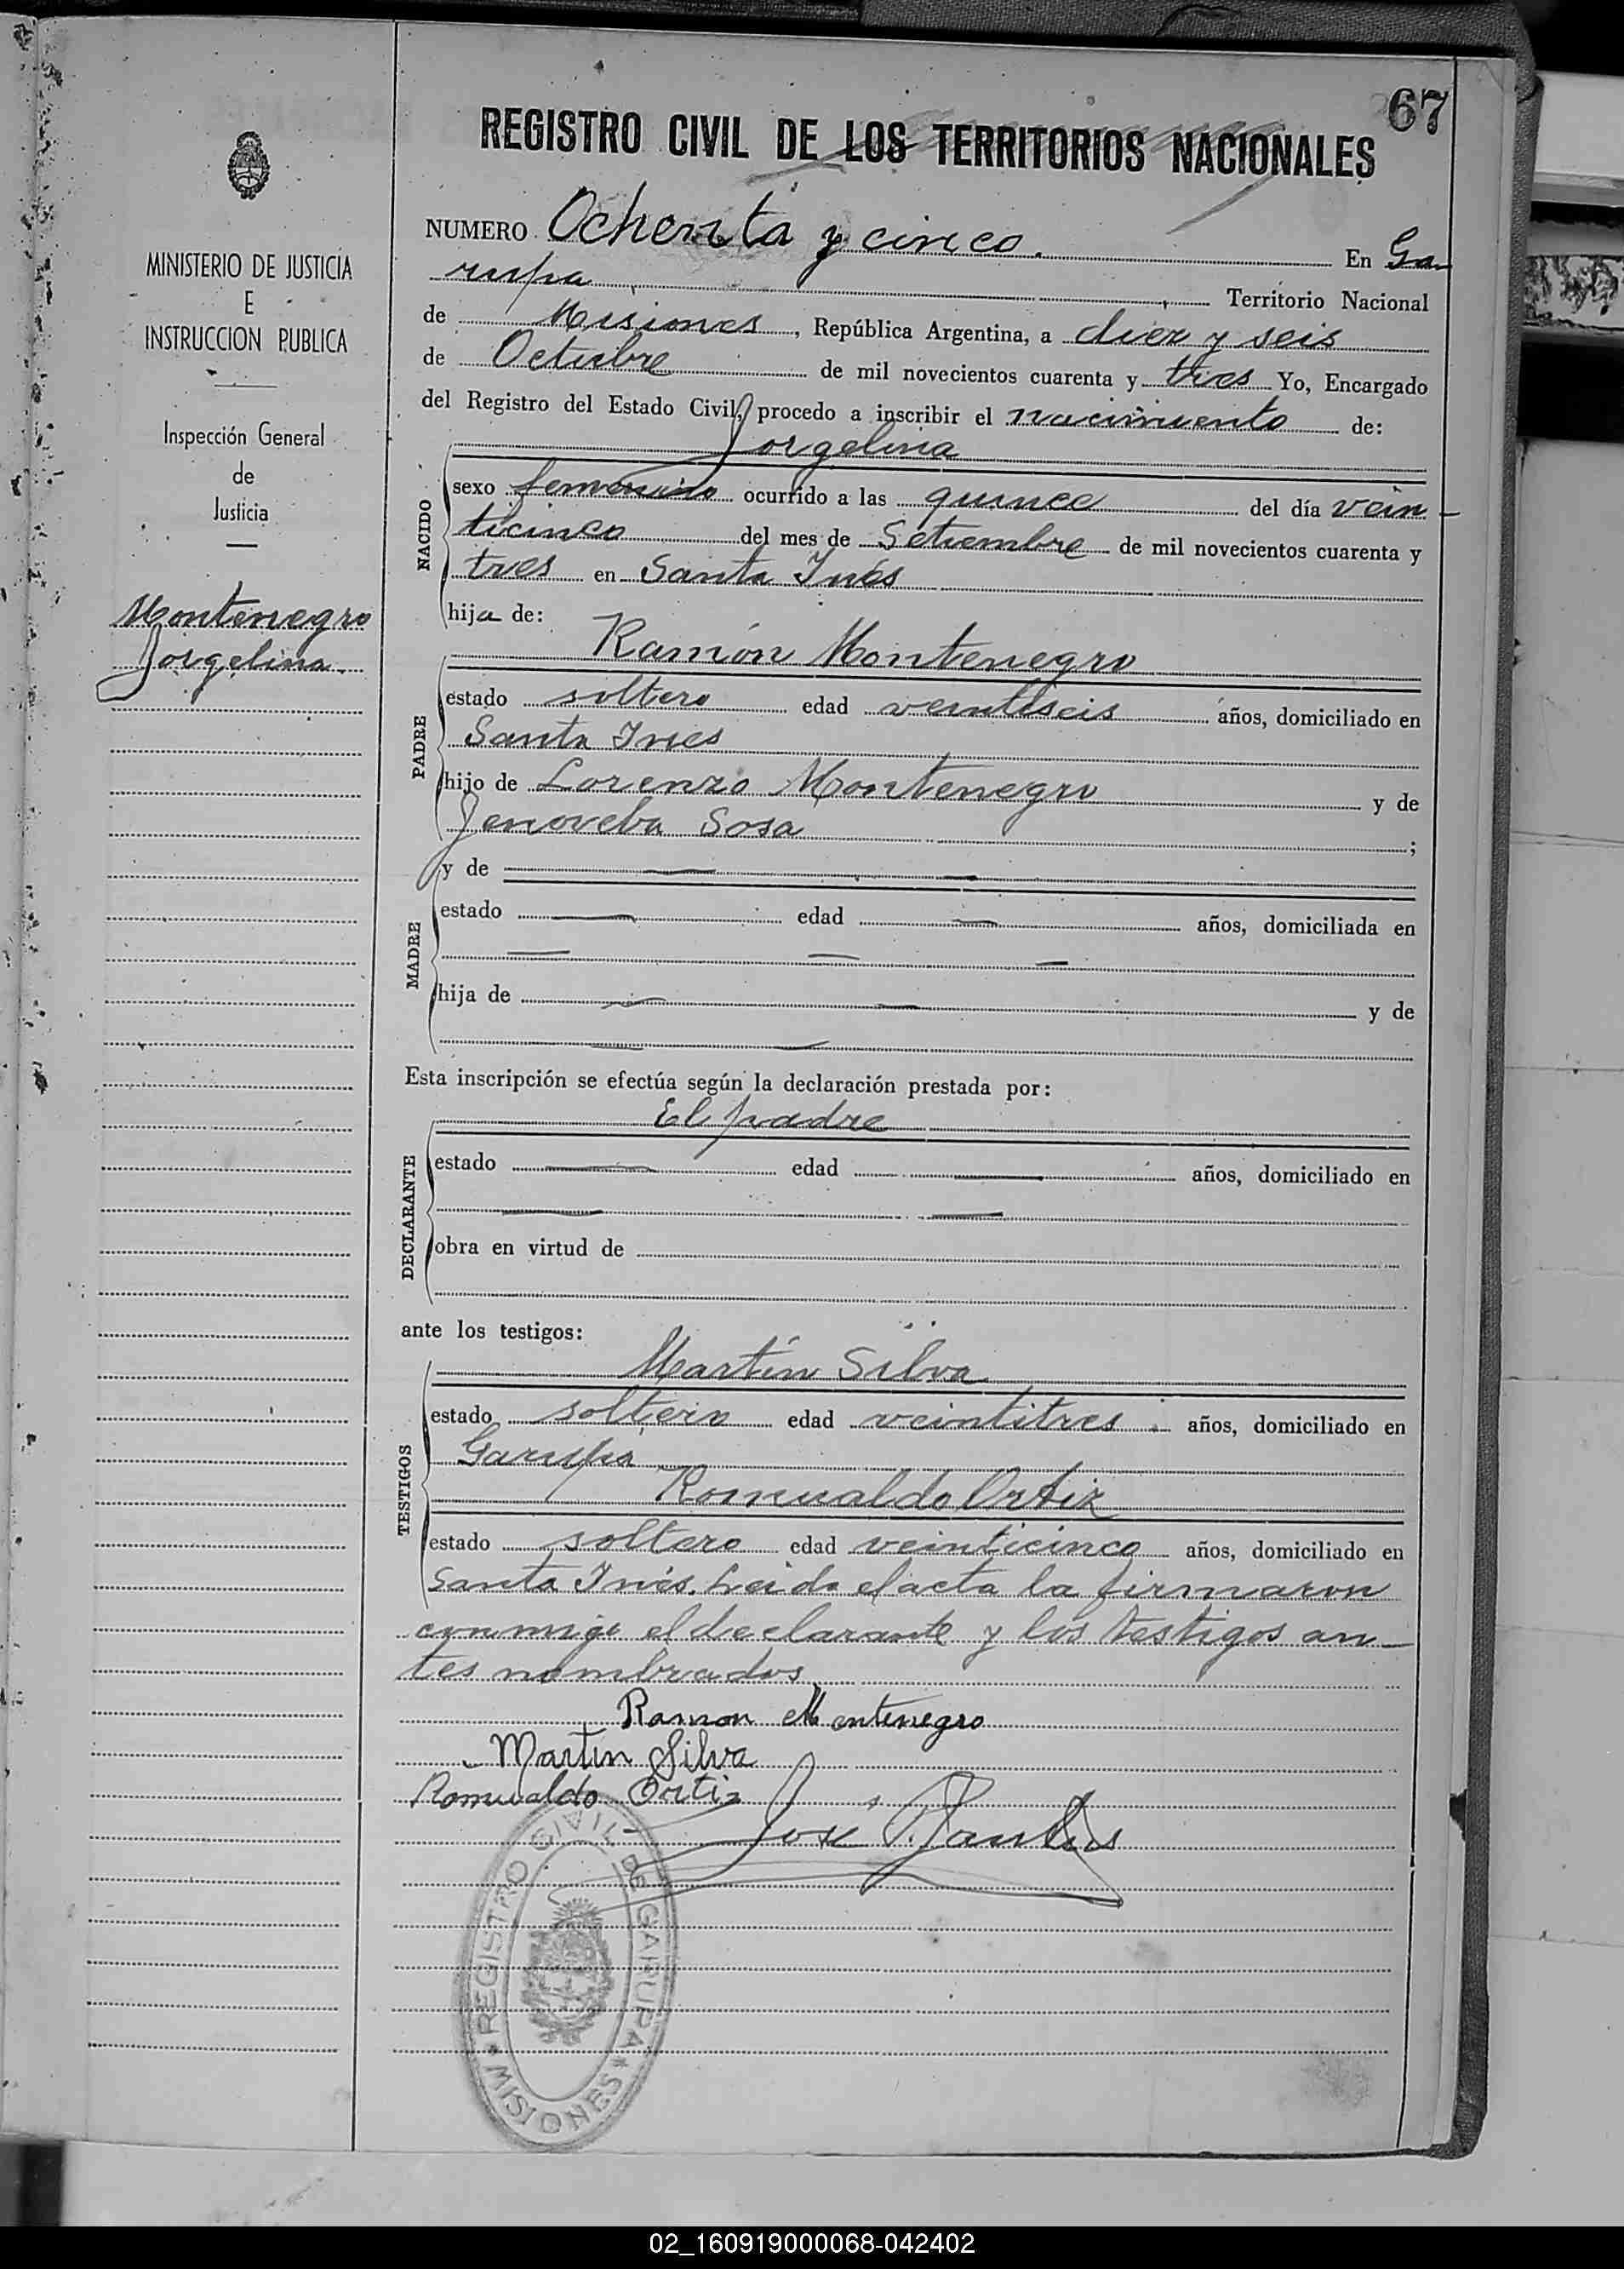 67
REGISTRO CIVIL DE LOS TERRITORIOS NACIONALES
MINISTERIO DE JUSTICIA
E
INSTRUCCION PUBLICA
Inspección General
de
Justicia
Montenegro
Jorgelina
NUMERO Ochenta y cinco. En Ga-
rupa Territorio Nacional
de Misiones, República Argentina, a diez y seis
de Octubre de mil novecientos cuarenta y tres Yo, Encargado
del Registro del Estado Civil, procedo a inscribir el nacimiento de:
Jorgelina
NACIDO
sexo femenino ocurrido a las quince del día vein-
ticinco del mes de Setiembre de mil novecientos cuarenta y
tres en Santa Inés
hija de:
Ramón Montenegro
PADRE
estado soltero edad veintiseis años, domiciliado en
Santa Ines
hijo de Lorenzo Montenegro y de
Jenoveba Sosa ;
y de
MADRE
estado edad años, domiciliada en
hija de y de
Esta inscripción se efectúa según la declaración prestada por:
El padre
DECLARANTE
estado edad años, domiciliado en
obra en virtud de
ante los testigos:
Martín Silva
TESTIGOS
estado soltero edad veintitres años, domiciliado en
Garupa
Romualdo Ortiz
estado soltero edad veinticinco años, domiciliado en
Santa Inés. Leida el acta la firmaron
conmigo el declarante y los testigos an-
tes nombrados
Ramon Montenegro
Martin Silva
Romualdo Ortiz
José
REGISTRO CIVIL DE GARUPA
* MISIONES *
02_160919000068-042402